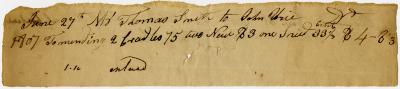 June 27th Mr Thomas Smith to John Unie Dr
1807 To mending 2 Cradles 75 one New $3 one Snied 33½ $ 4-8 3
entred